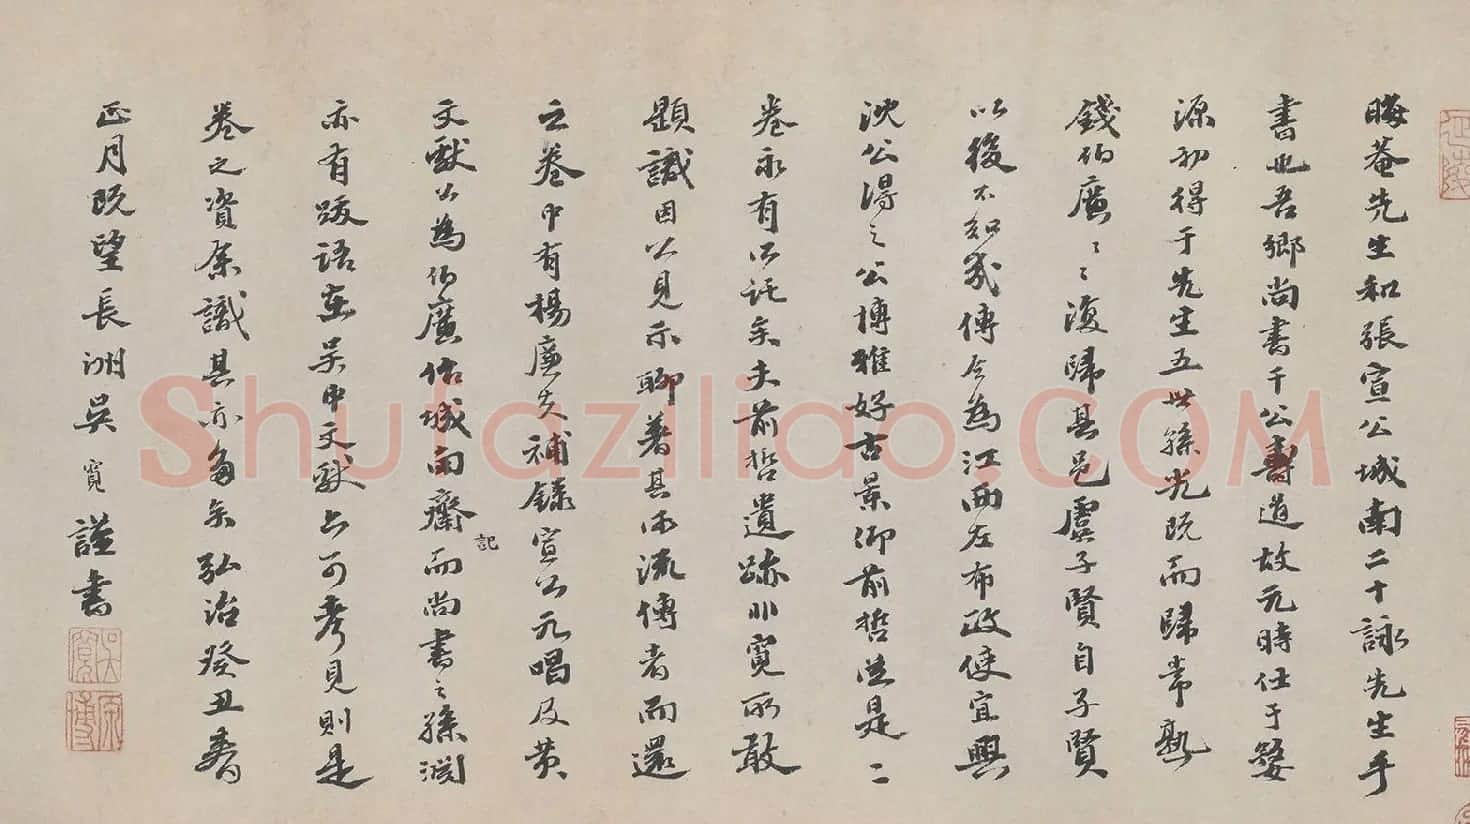 晦菴先生和張宣公城南二十詠先生手
書也吾鄉尚書干公壽道故元時仕于婺
源初得于先生五世孫光既而歸常熟
錢伯廣〻〻復歸其邑虞子賢自子賢
以後不知幾傳今為江西左布政使宜興
沈公得之公博雅好古景仰前哲從是二
卷永有所託矣夫前哲遺跡非寛所敢
題識因公見示聊著其所流傳者而還
之卷中有楊廉夫補錄宣公元唱及黄
文獻公為伯廣作城南齋記而尚書之孫淵
亦有跋語在吴中文獻上可考見則是
卷之資多識其亦多矣弘治癸丑春
正月既望長洲吴寛謹書
吴寛
原博
Shufaziliao.COM